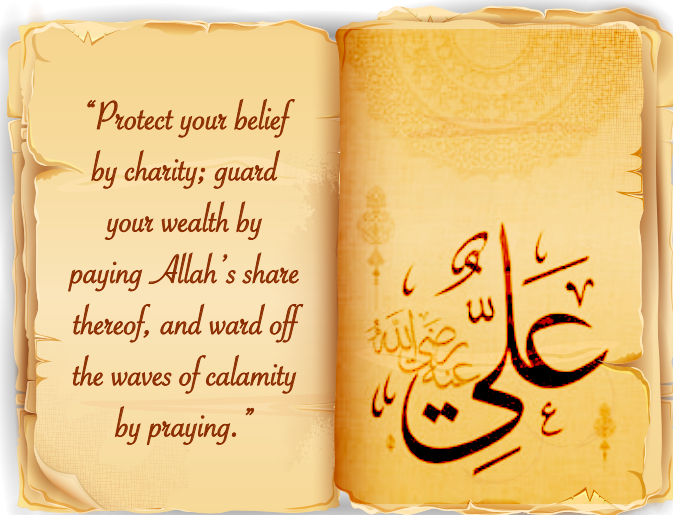 “Protect your belief
by charity; guard
your wealth by
paying Allah’s share
thereof, and ward off
the waves of calamity
by praying.”
عَلِيٌّ
رضي الله
عنه